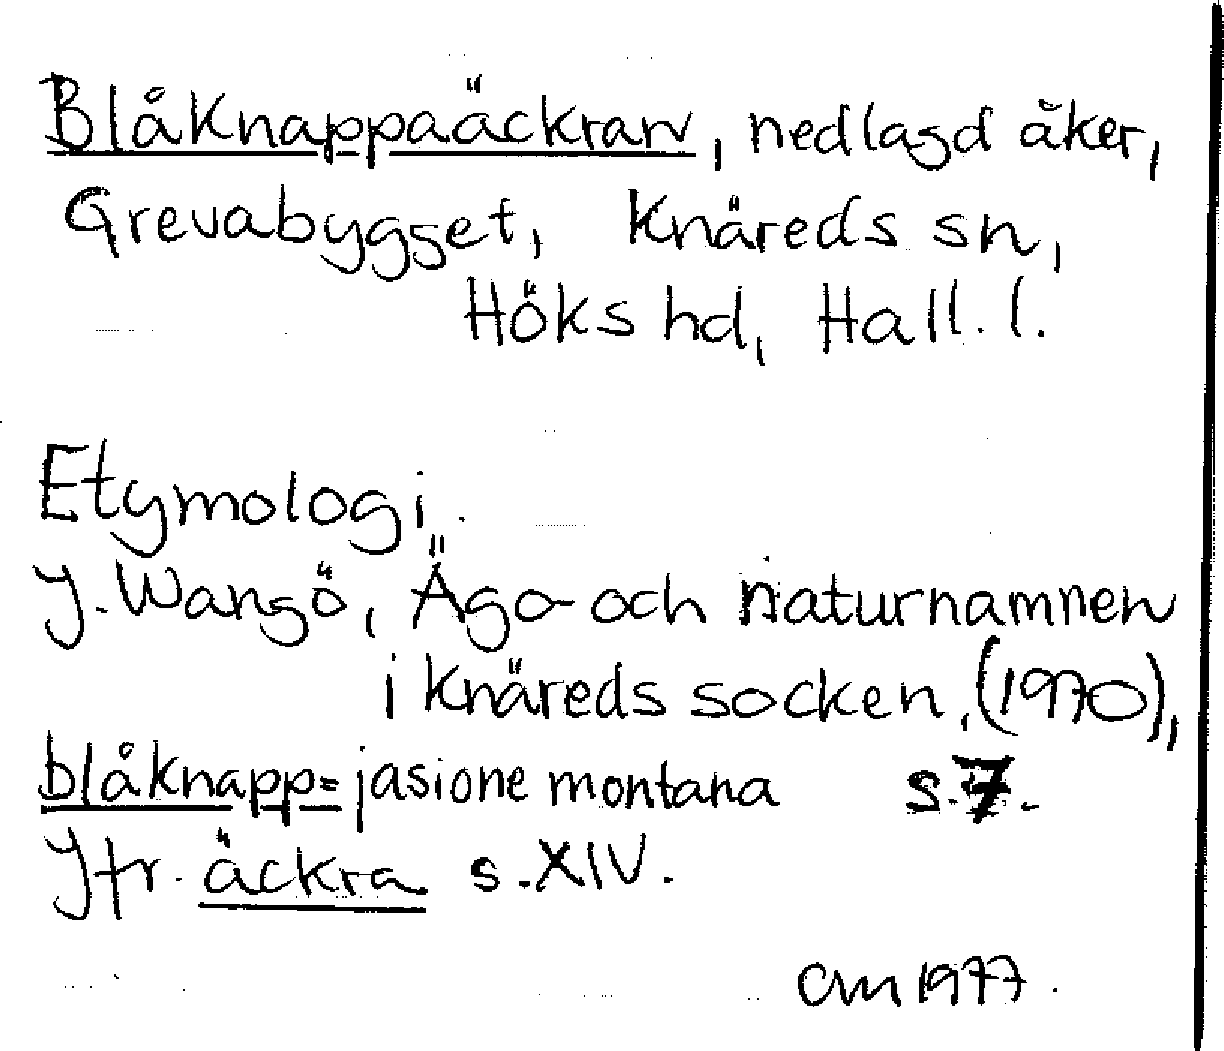 Blåknappaäckran, nedlagd åker,
Grevabygget, Knäreds sn,
Höks hd, Hall. l.
Etymologi.
J. Wangö, Ägo- och naturnamnen
i Knäreds socken, (1970),
blåknapp = jasione montana s. 7.
Jfr. äckra s. XIV.
CM 1977.